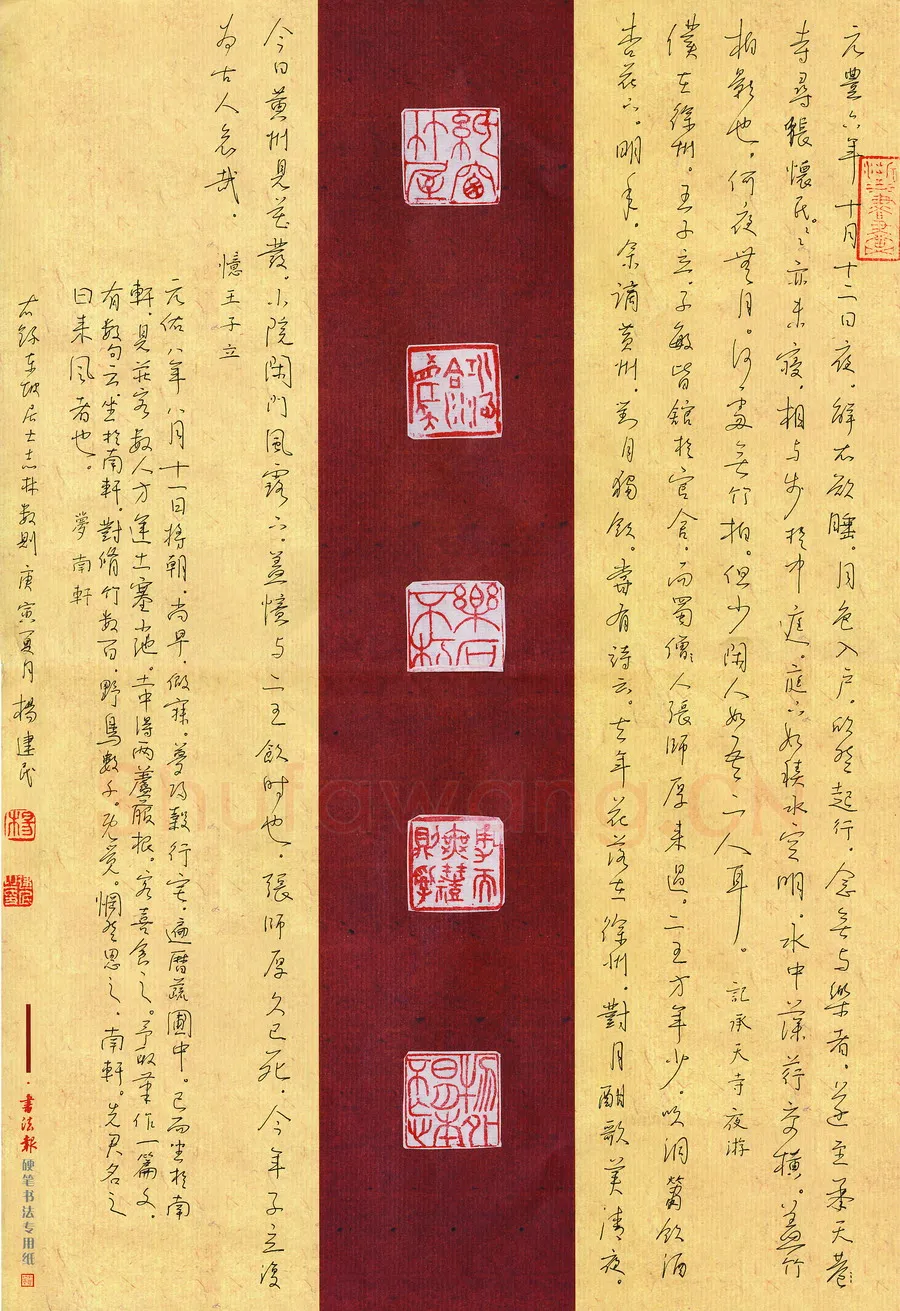 元豐六年十月十二日夜。解衣欲睡。月色入户。欣然起行。念無与樂者。遂至承天巷
寺尋張懷民。〻亦未寢。相与步於中庭。庭下如積水空明。水中藻荇交橫。盖竹
柏影也。何夜無月。何處無竹柏。但少閑人如吾二人耳。 記承天寺夜游
僕在徐州。王子立。子敏皆館於官舍。而蜀僧人張師厚来過。二王方年少。吹洞簫飲酒
杏花下。明年。余謫黄州。對月獨飲。嘗有詩云。去年花落在徐州。對月酣歌美清夜。
紙窗竹屋
今日黄州見花發。小院閑門風露下。盖憶与二王飲时也。張師厚久已死。今年子立復
为古人哀哉。 憶王子立
元佑八年八月十一日將朝。尚早。假寐。夢歸縠行宅。遍曆蔬圃中。已而坐於南
軒。見莊客數人方運土塞小池。土中得兩蘆菔根。客喜食之。予取筆作一篇文。
有數句云坐於南軒。對脩竹數百。野鳥數千。既覺。惘然思之。南軒。先君名之
曰来風者也。 夢南軒
右錄東坡居士志林數則 庚寅夏月 楊建民
楊
·書法報硬笔书法专用纸
shufawang.CN